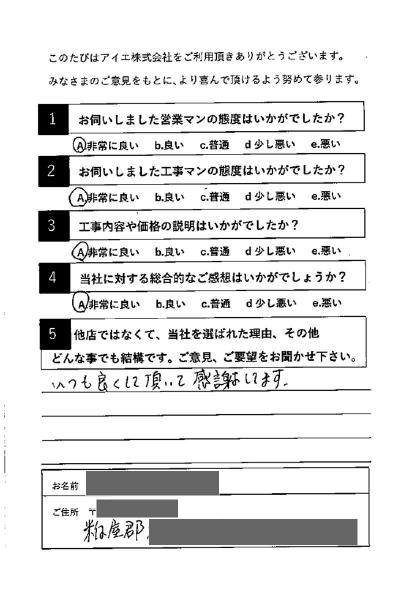 このたびはアイエ株式会社をご利用頂きありがとうございます。
みなさまのご意見をもとに、より喜んで頂けるよう努めて参ります。
1 お伺いしました営業マンの態度はいかがでしたか？
A非常に良い b.良い c.普通 d少し悪い e.悪い
2 お伺いしました工事マンの態度はいかがでしたか？
A非常に良い b.良い c.普通 d少し悪い e.悪い
3 工事内容や価格の説明はいかがでしたか？
A非常に良い b.良い c.普通 d少し悪い e.悪い
4 当社に対する総合的なご感想はいかがでしょうか？
A非常に良い b.良い c.普通 d少し悪い e.悪い
5 他店ではなくて、当社を選ばれた理由、その他
どんな事でも結構です。ご意見、ご要望をお聞かせ下さい。
いつも良くして頂いて感謝してます。
お名前
ご住所 〒
粕屋郡